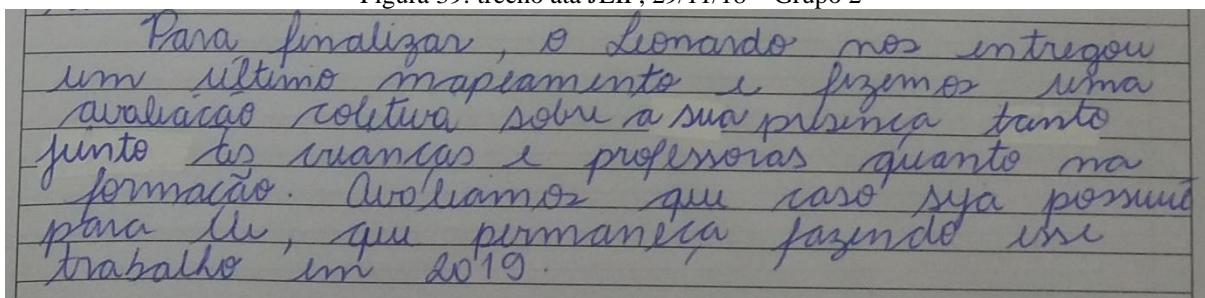 Figura 39: trecho ata JEIF, 29/11/18 – Grupo 2
Para finalizar, o Leonardo nos entregou
um último mapeamento e fizemos uma
avaliação coletiva sobre a sua presença tanto
junto às crianças e professoras quanto na
formação. Avaliamos que caso seja possível
para ele, que permaneça fazendo esse
trabalho em 2019.